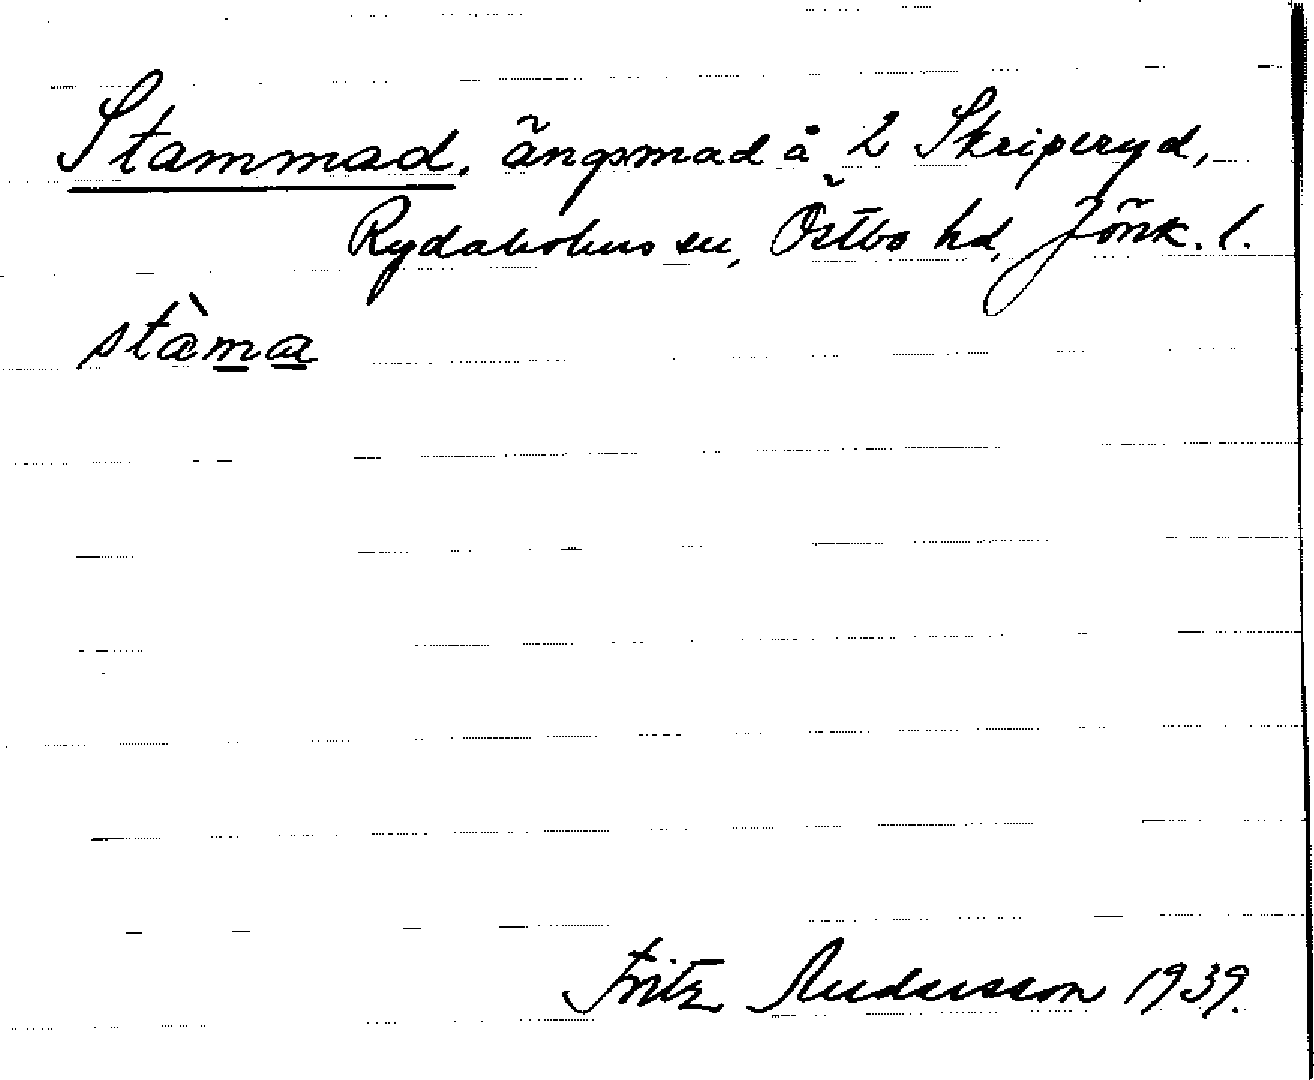 Stammad, ängsmad å 2 Skriperyd,
Rydaholms sn, Östbo hd, Jönk. l.
stàma
Fritz Andersson 1939.